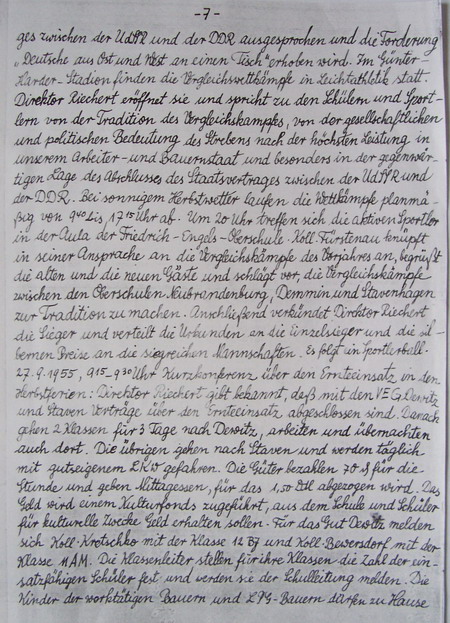 - 7 -
ges zwischen der UdSSR und der DDR ausgesprochen und die Forderung
„Deutsche aus Ost und West an einen Tisch" erhoben wird. Im Günter-
Harder-Stadion finden die Vergleichswettkämpfe in Leichtathletik statt.
Direktor Riechert eröffnet sie und spricht zu den Schülern und Sport-
lern von der Tradition des Vergleichskampfes, von der gesellschaftlichen
und politischen Bedeutung des Strebens nach der höchsten Leistung in
unserem Arbeiter- und Bauernstaat und besonders in der gegenwär-
tigen Lage des Abschlusses des Staatsvertrages zwischen der UdSSR und
der DDR. Bei sonnigem Herbstwetter laufen die Wettkämpfe planmä-
ßig von 9⁴⁰ bis 17¹⁵ Uhr ab. Um 20 Uhr treffen sich die aktiven Sportler
in der Aula der Friedrich-Engels-Oberschule. Koll. Fürstenau knüpft
in seiner Ansprache an die Vergleichskämpfe des Vorjahres an, begrüßt
die alten und die neuen Gäste und schlägt vor, die Vergleichskämpfe
zwischen den Oberschulen Neubrandenburg, Demmin und Stavenhagen
zur Tradition zu machen. Anschließend verkündet Direktor Riechert
die Sieger und verteilt die Urkunden an die Einzelsieger und die sil-
bernen Preise an die siegreichen Mannschaften. Es folgt ein Sportlerball.
27.9.1955, 9¹⁵-9³⁰ Uhr Kurzkonferenz über den Ernteeinsatz in den
Herbstferien: Direktor Riechert gibt bekannt, daß mit den VEG Dewitz
und Staven Verträge über den Ernteeinsatz abgeschlossen sind. Danach
gehen 2 Klassen für 3 Tage nach Dewitz, arbeiten und übernachten
auch dort. Die übrigen gehen nach Staven und werden täglich
mit gutseigenem LKW gefahren. Die Güter bezahlen 70 ₰ für die
Stunde und geben Mittagessen, für das 1,50 DM abgezogen wird. Das
Geld wird einem Kulturfonds zugeführt, aus dem Schule und Schüler
für kulturelle Zwecke Geld erhalten sollen. Für das Gut Dewitz melden
sich Koll. Kretschko mit der Klasse 12 B7 und Koll. Bewersdorf mit der
Klasse 11 AM. Die Klassenleiter stellen für ihre Klassen die Zahl der ein-
satzfähigen Schüler fest und werden sie der Schulleitung melden. Die
Kinder der werktätigen Bauern und LPG-Bauern dürfen zu Hause